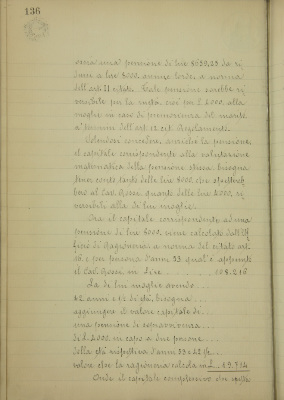 136
una pensione di lire 8639,23 da ri
durre a lire 8000 annue lorde a norma
dell'art. 11 citato. Tale pensione sarebbe ri
versibile per la metà, cioè per L. 4000, alla
moglie in caso di premorienza del marito
a termini dell'art. 12 cit. Regolamento.
Volendosi concedere, anzichè la pensione,
il capitale corrispondente alla valutazione
matematica della pensione stessa, bisogna
tener conto tanto delle lire 8000 che
bero al Cav. quanto delle lire 4000, ri
versibili alla di lui moglie.
Ora il capitale corrispondente ad una
pensione di lire 8000, viene calcolato dall'Uf
ficio di Ragioneria a norma del citato art.
per persona d'anni 33 qual'è appunto
il Cav. in Lire 108.216
La di lui moglie avendo
42 anni e di età, bisogna
aggiungere il valore capitale di
una pensione di sopravvivenza
di L. 4000 in capo a due persone
della età rispettiva d'anni 33 e 42
valore che la ragioneria calcola in L.
Onde il capitale complessivo che